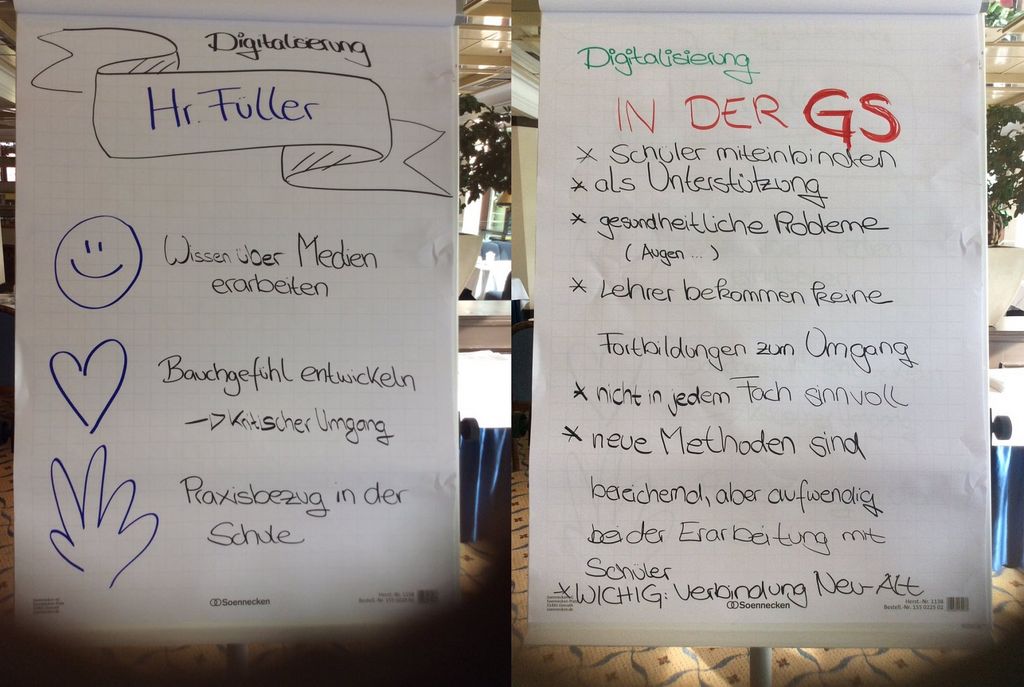 Digitalisierung
Hr. Füller
Wissen über Medien
erarbeiten
Bauchgefühl entwickeln
-> Kritischer Umgang
Praxisbezug in der
Schule
Soennecken
Herst.-Nr. 1138
Digitalisierung
IN DER GS
* Schüler miteinbinden
* als Unterstützung
* gesundheitliche Probleme
(Augen ...)
* Lehrer bekommen keine
Fortbildungen zum Umgang
* nicht in jedem Fach sinnvoll
* neue Methoden sind
bereichernd, aber aufwendig
bei der Erarbeitung mit
Schüler
* WICHIG: Verbindung Neu-Alt
Soennecken
Herst.-Nr. 1138
Bestell.-Nr. 155 0225 02